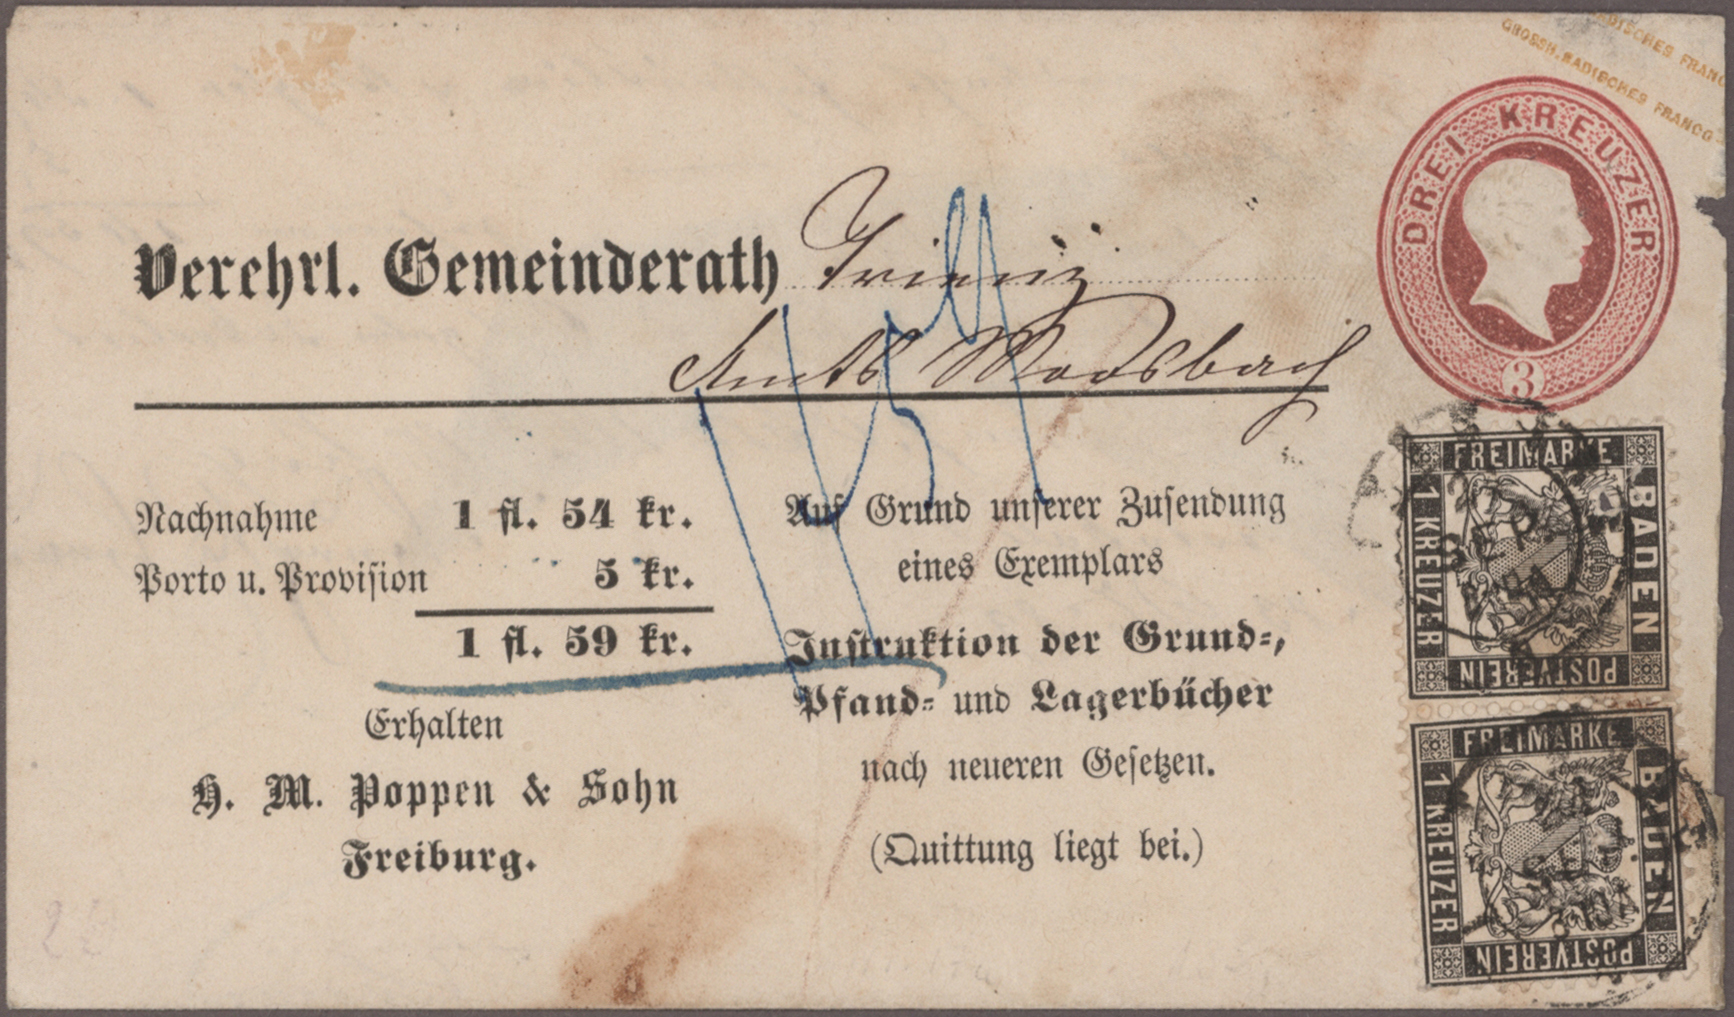 BADISCHES FRANCO
GROSSH. BADISCHES FRANCO
DREI KREUZER
3
Verehrl. Gemeinderath Trienz
Amts Mosbach
Nachnahme 1 fl. 54 kr.
Porto u. Provision 5 kr.
1 fl. 59 kr.
Erhalten
H. M. Poppen & Sohn
Freiburg.
Auf Grund unserer Zusendung
eines Exemplars
Instruktion der Grund-,
Pfand- und Lagerbücher
nach neueren Gesetzen.
(Quittung liegt bei.)
FREIMARKE
BADEN
POSTVEREIN
1 KREUZER
FREIMARKE
BADEN
POSTVEREIN
1 KREUZER